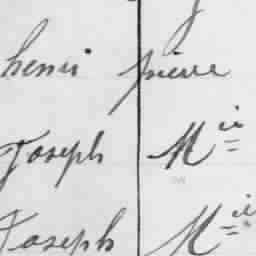 henri pierre
Joseph M^ie
Joseph M^ie